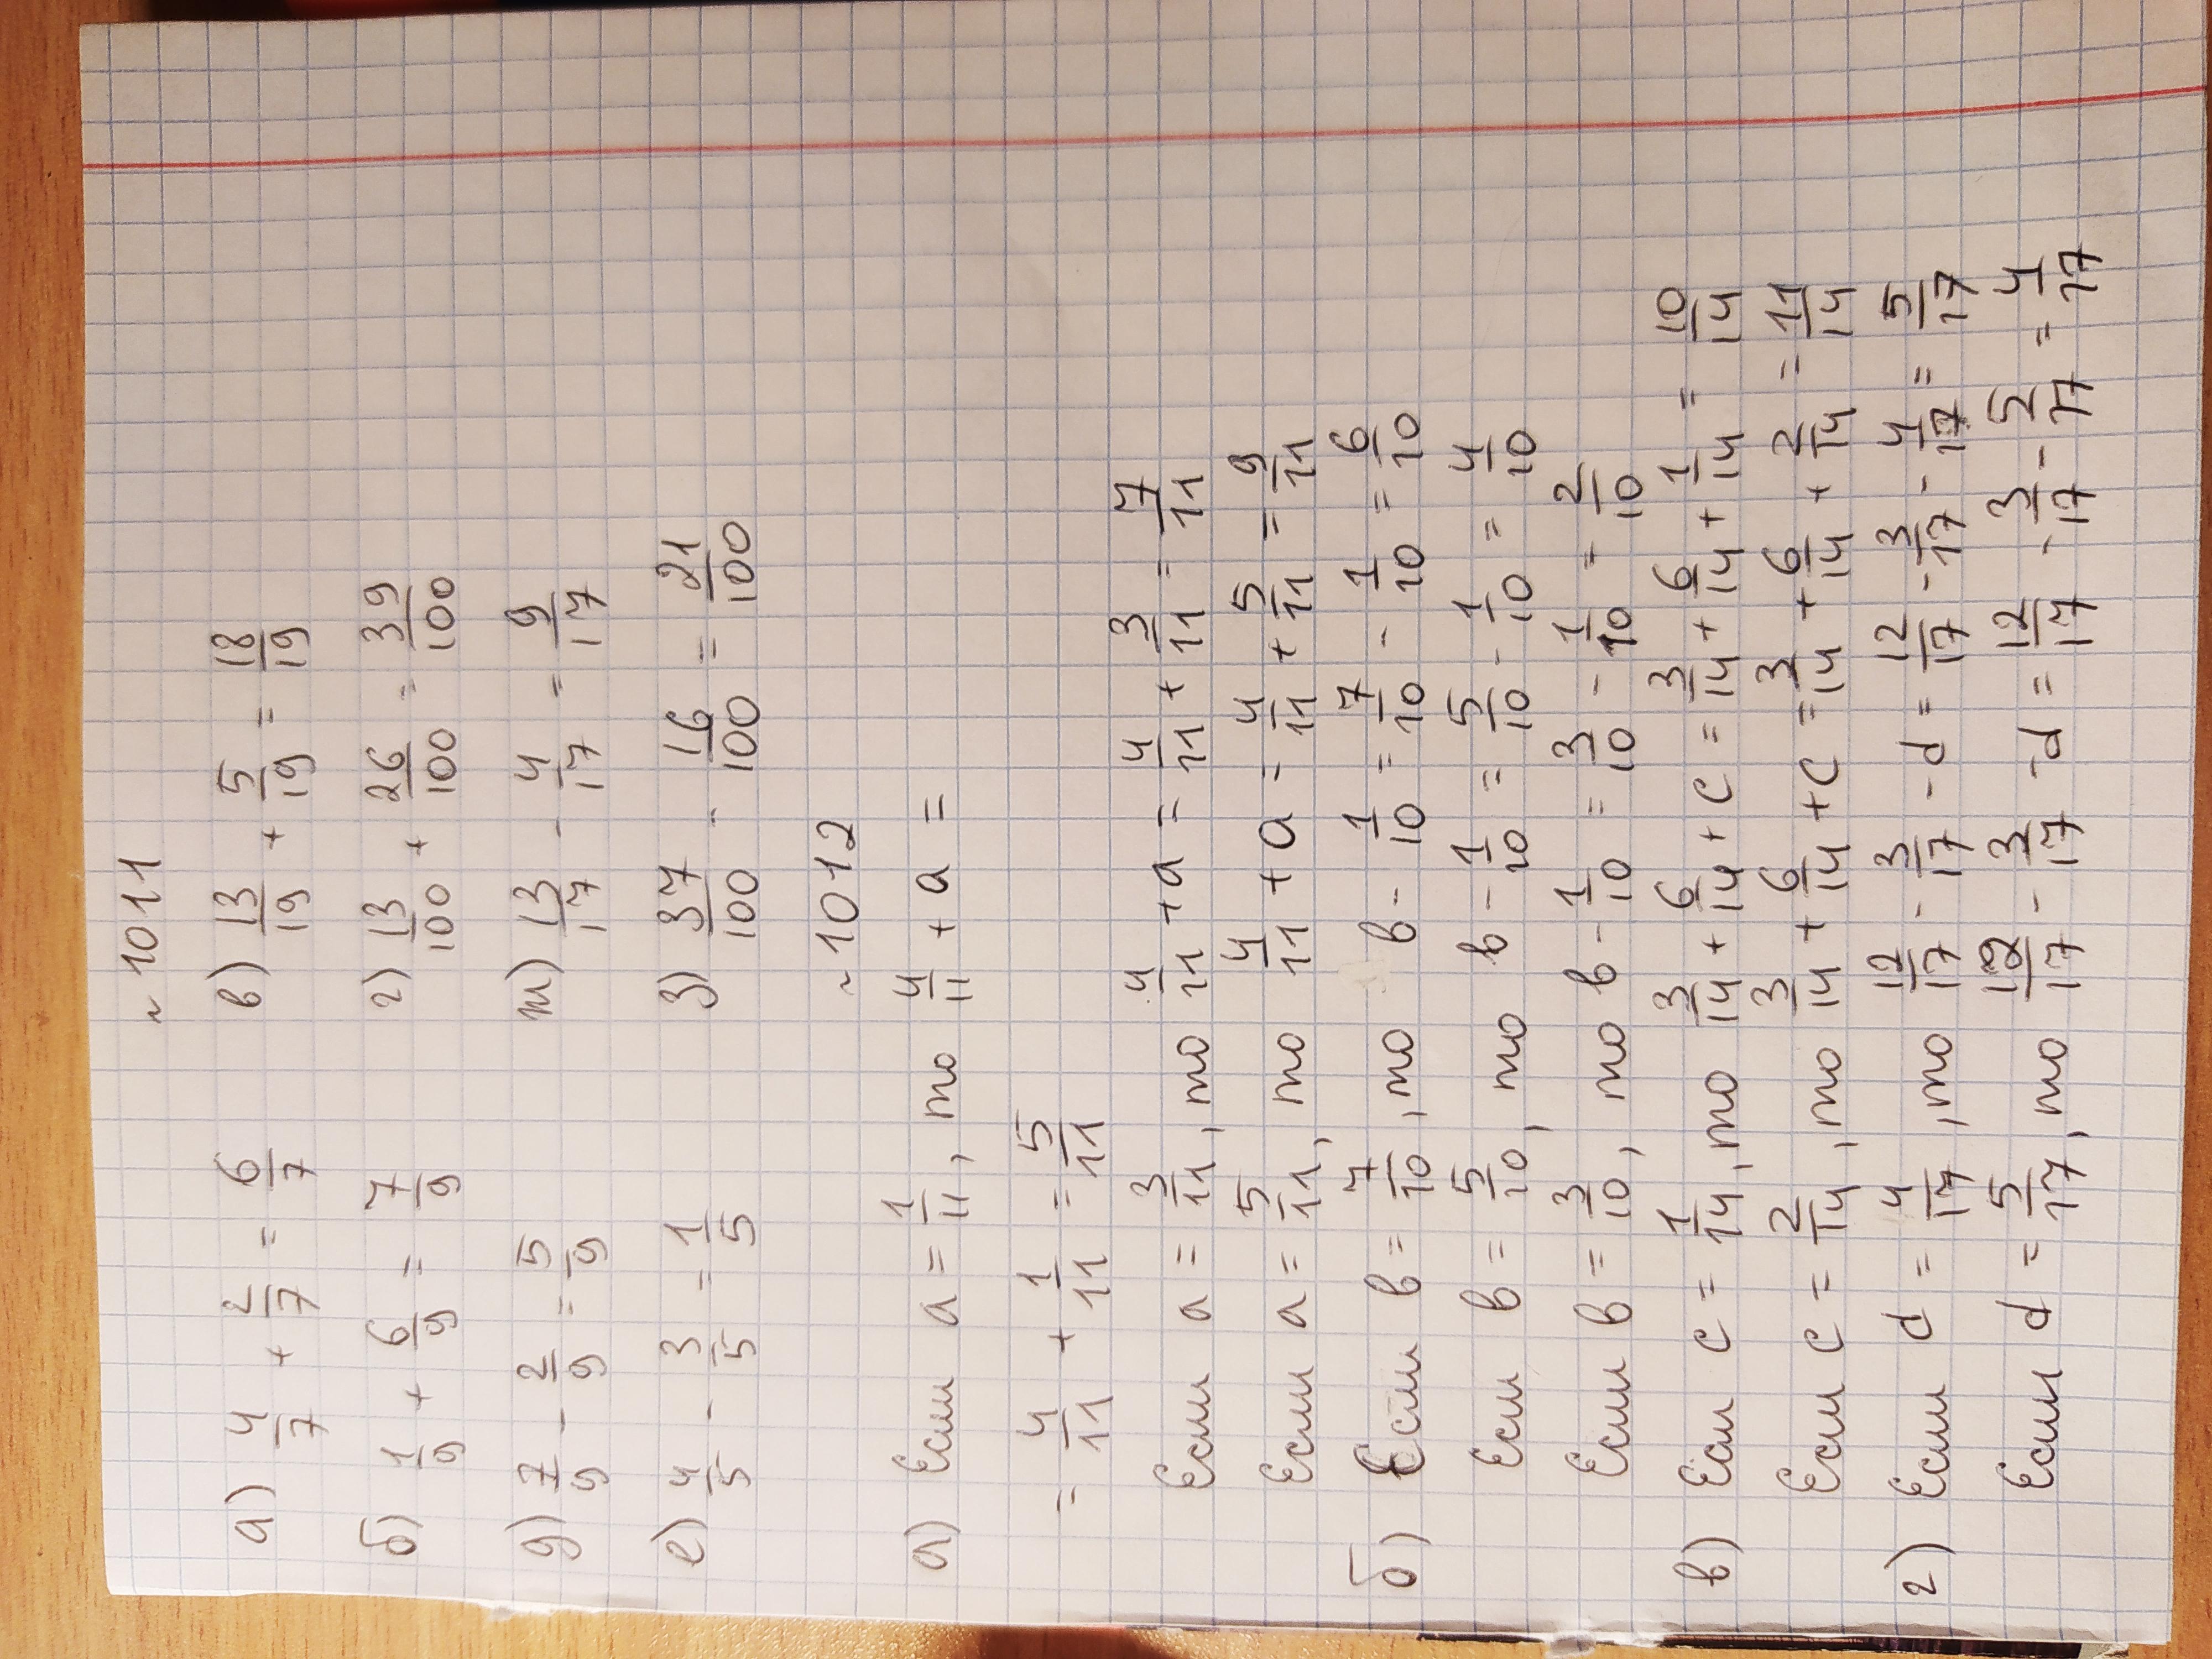 ~ 1011
а) 4/7 + 2/7 = 6/7 в) 13/19 + 5/19 = 18/19
б) 1/9 + 6/9 = 7/9 г) 13/100 + 26/100 = 39/100
д) 7/9 - 2/9 = 5/9 ж) 13/17 - 4/17 = 9/17
е) 4/5 - 3/5 = 1/5 з) 37/100 - 16/100 = 21/100
~ 1012
а) Если a = 1/11, то 4/11 + a =
= 4/11 + 1/11 = 5/11
Если a = 3/11, то 4/11 + a = 4/11 + 3/11 = 7/11
Если a = 5/11, то 4/11 + a = 4/11 + 5/11 = 9/11
б) Если b = 7/10, то b - 1/10 = 7/10 - 1/10 = 6/10
Если b = 5/10, то b - 1/10 = 5/10 - 1/10 = 4/10
Если b = 3/10, то b - 1/10 = 3/10 - 1/10 = 2/10
в) Если c = 1/14, то 3/14 + 6/14 + c = 3/14 + 6/14 + 1/14 = 10/14
Если c = 2/14, то 3/14 + 6/14 + c = 3/14 + 6/14 + 2/14 = 11/14
г) Если d = 4/17, то 12/17 - 3/17 - d = 12/17 - 3/17 - 4/17 = 5/17
Если d = 5/17, то 12/17 - 3/17 - d = 12/17 - 3/17 - 5/17 = 4/17